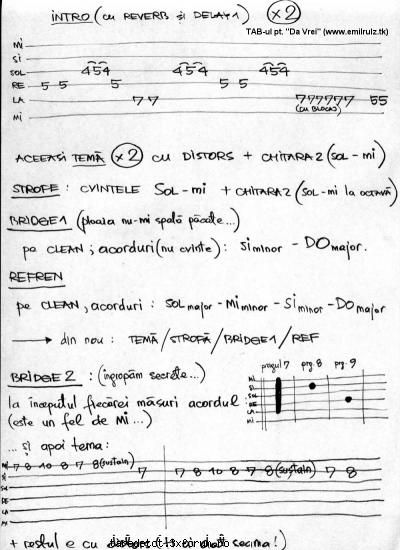 INTRO (cu REVERB și DELAY 1) (x2)
TAB-ul pt. "Da Vrei" (www.emilrulz.tk)
Mi
Si
SOL 454 454 454
RE 5 5 5 5 5
LA 7 7 777777 55
(cu BLOCAJ)
Mi
ACEEAȘI TEMĂ (x2) CU DISTORS + CHITARA 2 (SOL - mi)
STROFE : CVINTELE SOL - mi + CHITARA 2 (SOL - mi la OCTAVĂ)
BRIDGE 1 (ploaia nu-mi spală păcate...)
pe CLEAN ; acorduri (nu cvinte) : Si minor - DO major.
REFREN
pe CLEAN, acorduri : SOL major - Mi minor - Si minor - DO major
→ din nou : TEMĂ / STROFĂ / BRIDGE 1 / REF
BRIDGE 2 : (îngropăm secrete...)
pragul 7 prg. 8 prg. 9
MI
SI
SOL
RE
LA
MI
la începutul fiecărei măsuri acordul
(este un fel de Mi...)
... și apoi tema :
MI 7 8 10 8 7 8 (sustain) 7 8 10 8 7 8 (sustain) 7 8
SI 7
SOL
RE
LA
MI
+ restul e cu